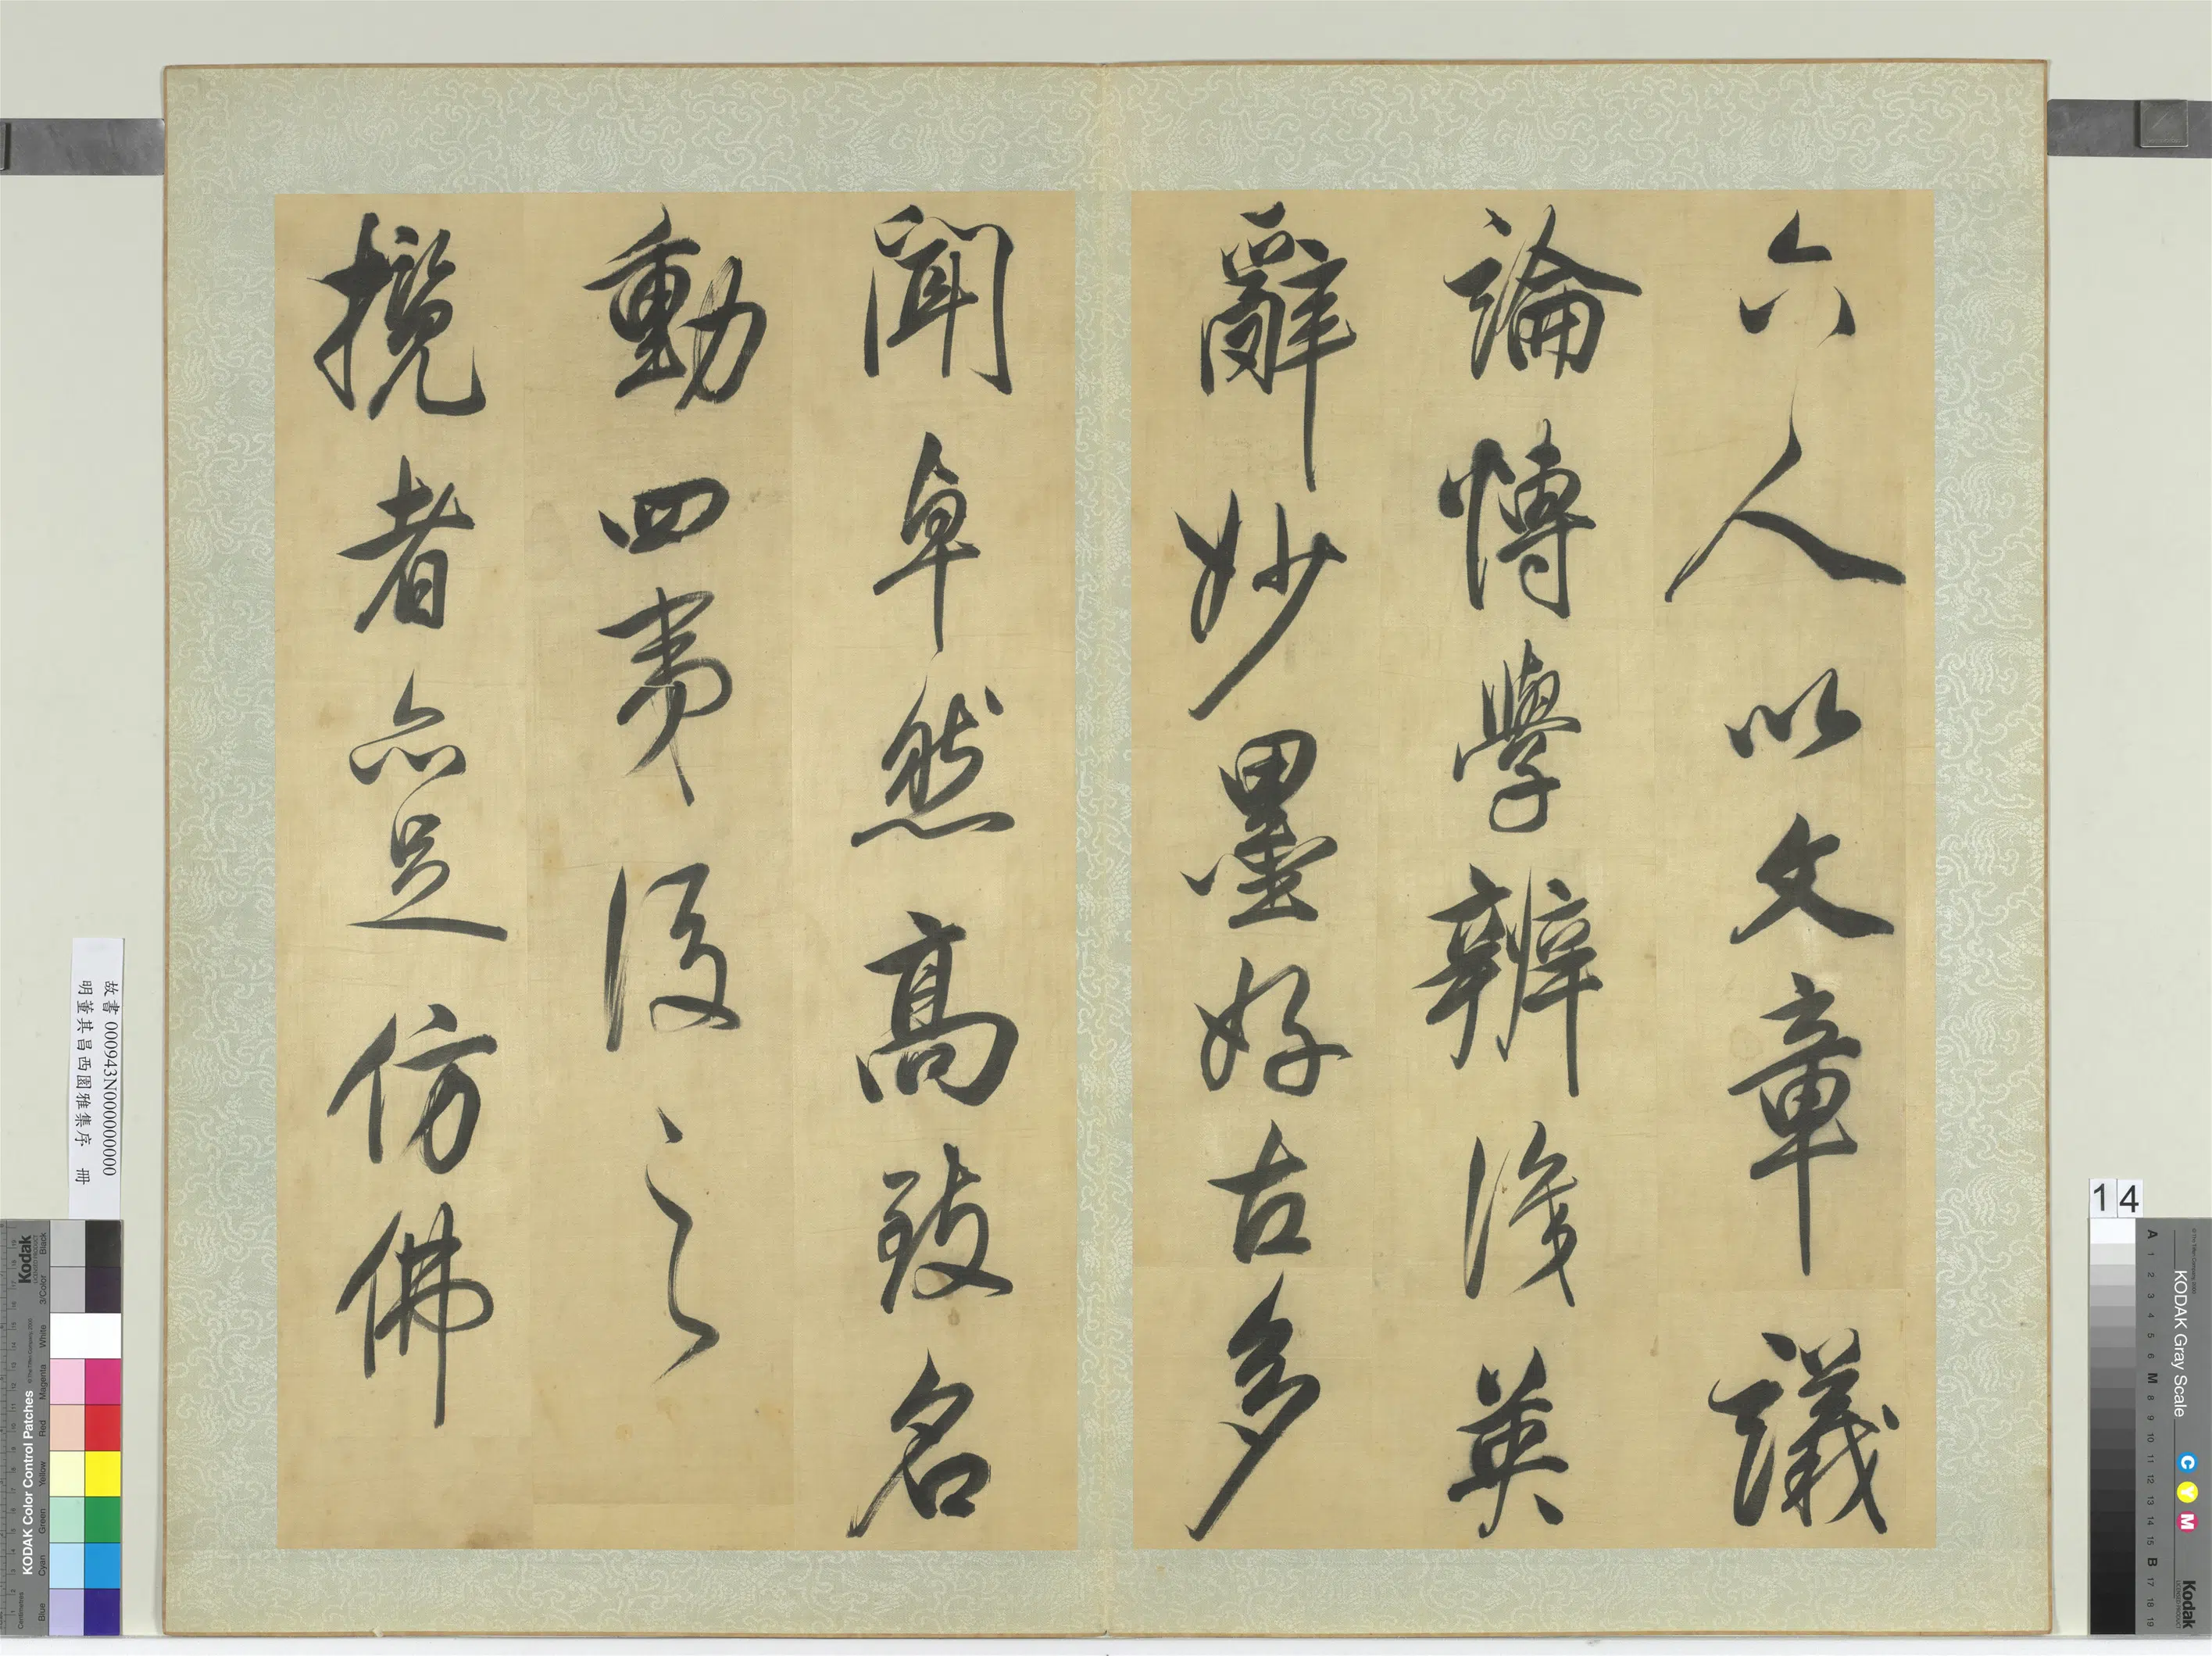 六人以文章議
論博學辨識英
辭妙墨好古多
聞卓然高致名
動四夷後之
攬者亦足仿佛
故書000943N000000000
明董其昌西園雅集序 冊
14
KODAK Gray Scale
C Y M
Kodak
A 1 2 3 4 5 6 M 8 9 10 11 12 13 14 15 B 17 18 19
Kodak
KODAK Color Control Patches
Blue Cyan Green Yellow Red Magenta White 3/Color Black
Centimetres